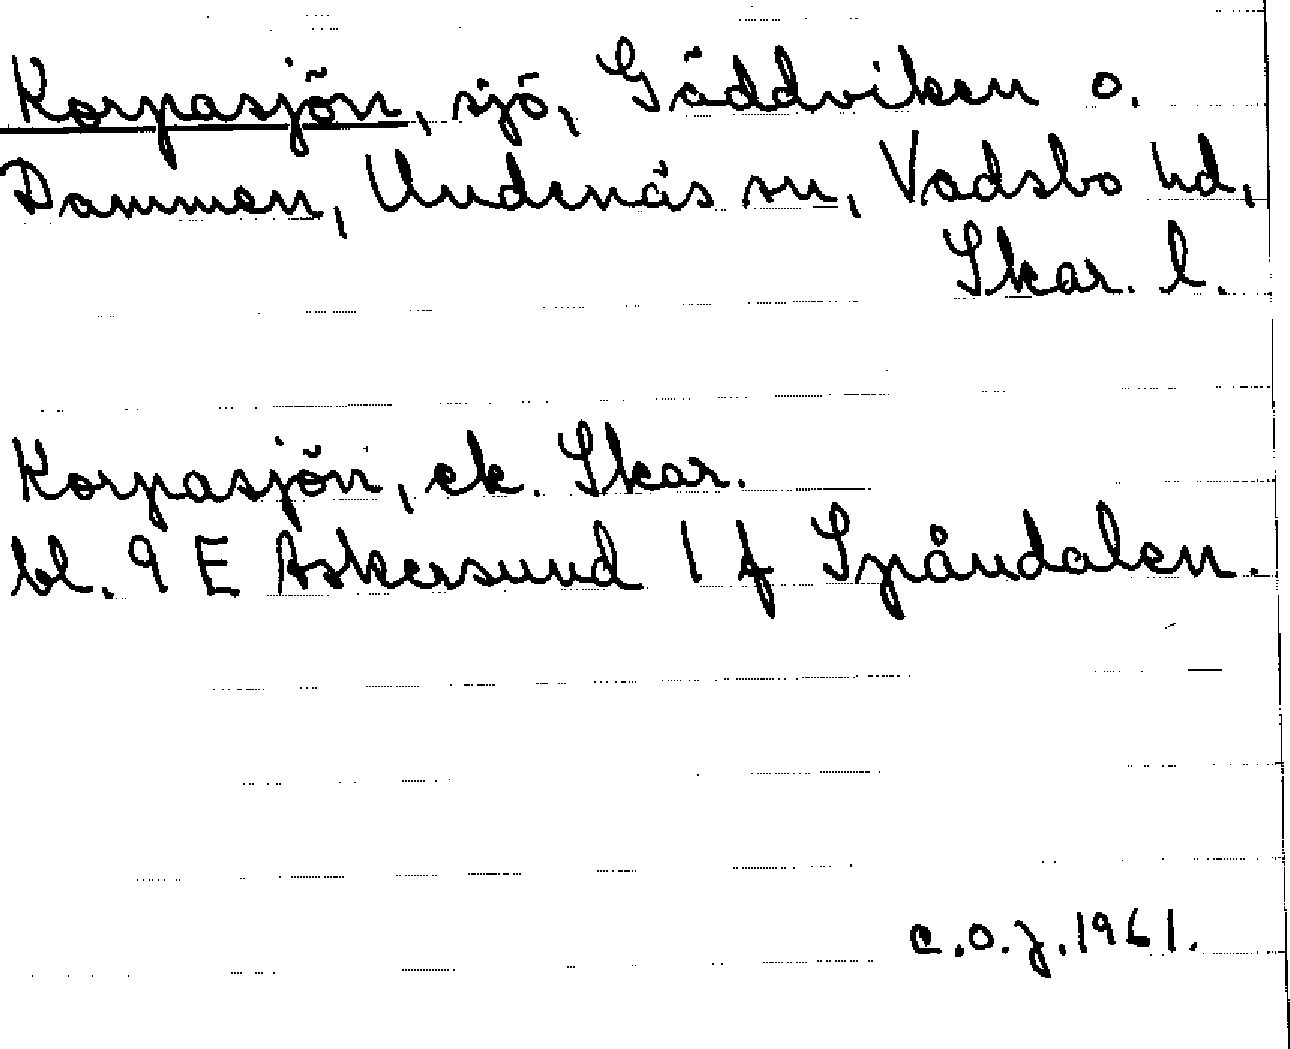 Korpasjön, sjö, Gäddviken o.
Dammen, Undenäs sn, Vadsbo hd,
Skar. l.
Korpasjön, ek. Skar.
bl. 9 E Askersund 1 f Spåndalen.
C.O.J. 1961.